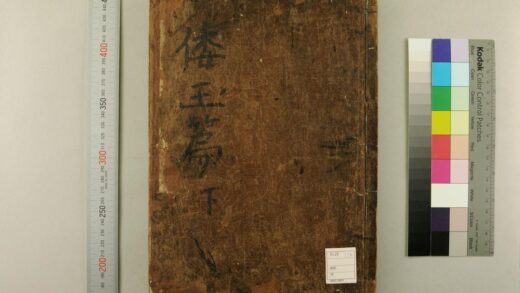 倭玉篇下
400
350
300
250
200
Kodak
Color Control Patches
Blue
Cyan
Green
Yellow
Red
Magenta
White
Black